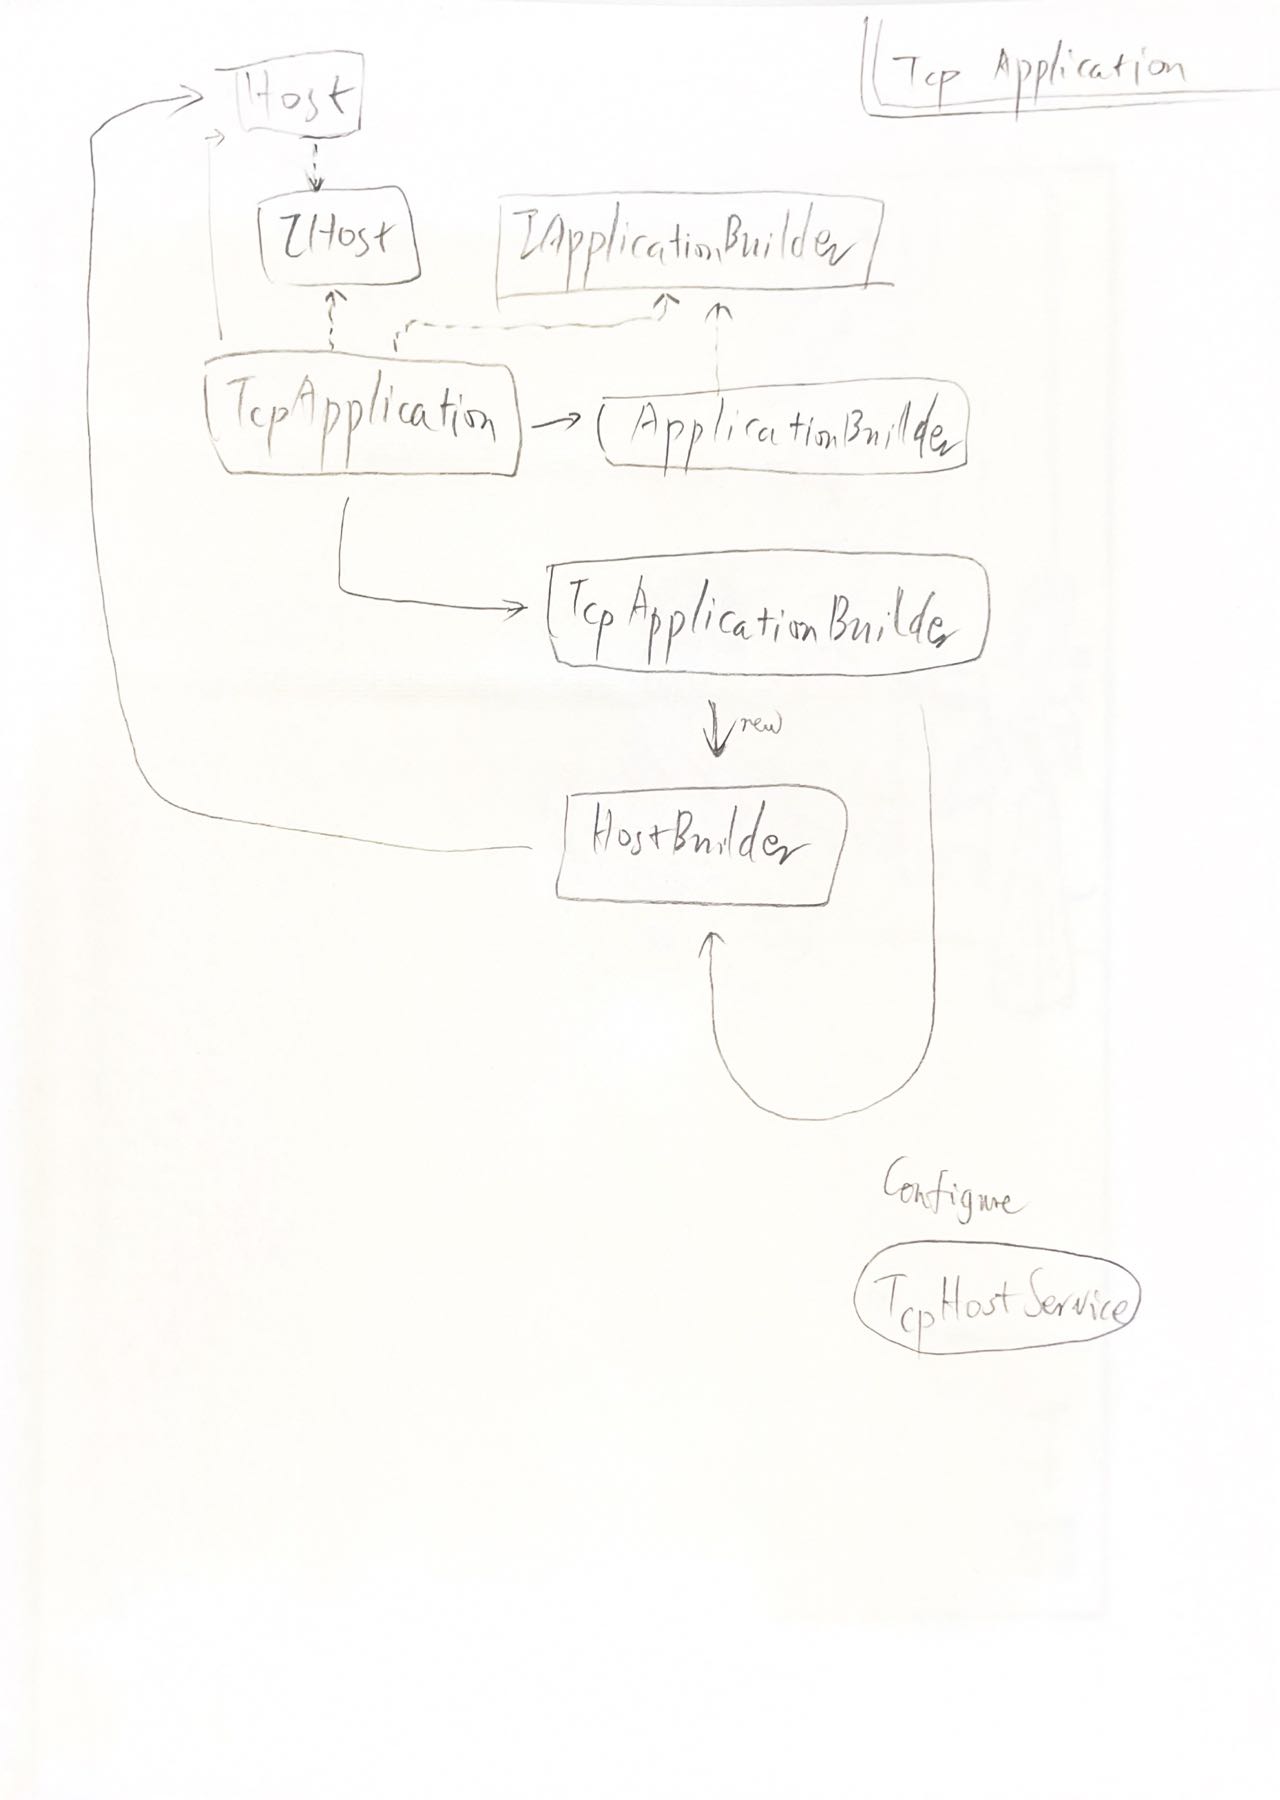 Tcp Application
Host
IHost
IApplicationBuilder
TcpApplication
ApplicationBuilder
TcpApplicationBuilder
new
HostBuilder
Configure
TcpHostService